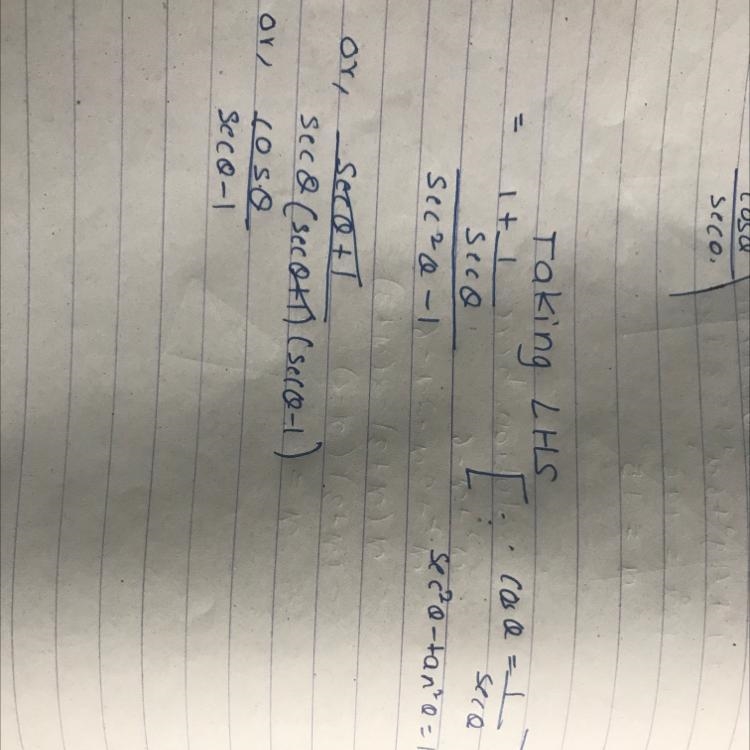 cosθ
secθ.
Taking LHS
= 1 + 1/secθ [∵ cosθ = 1/secθ
sec²θ - 1 sec²θ - tan²θ = 1
or, secθ + 1
secθ (secθ+1) (secθ-1)
or, cosθ
secθ-1